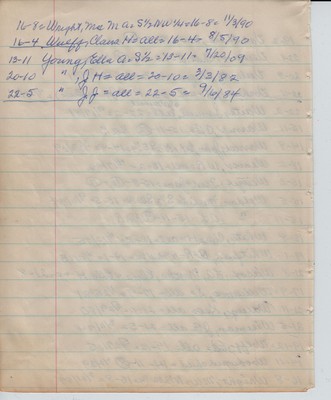 16-8 = Wright, M = M A = S½ NW¼ = 16-8 = 1/3/90
16-4 Wueff, Clara H = all = 16-4 = 8/5/90
13-11 Young, Ella A = S½ = 13-11 = 7/20/09
20-10 " ", J H = all = 20-10 = 3/3/82
22-5 " J J = all = 22-5 = 9/10/84